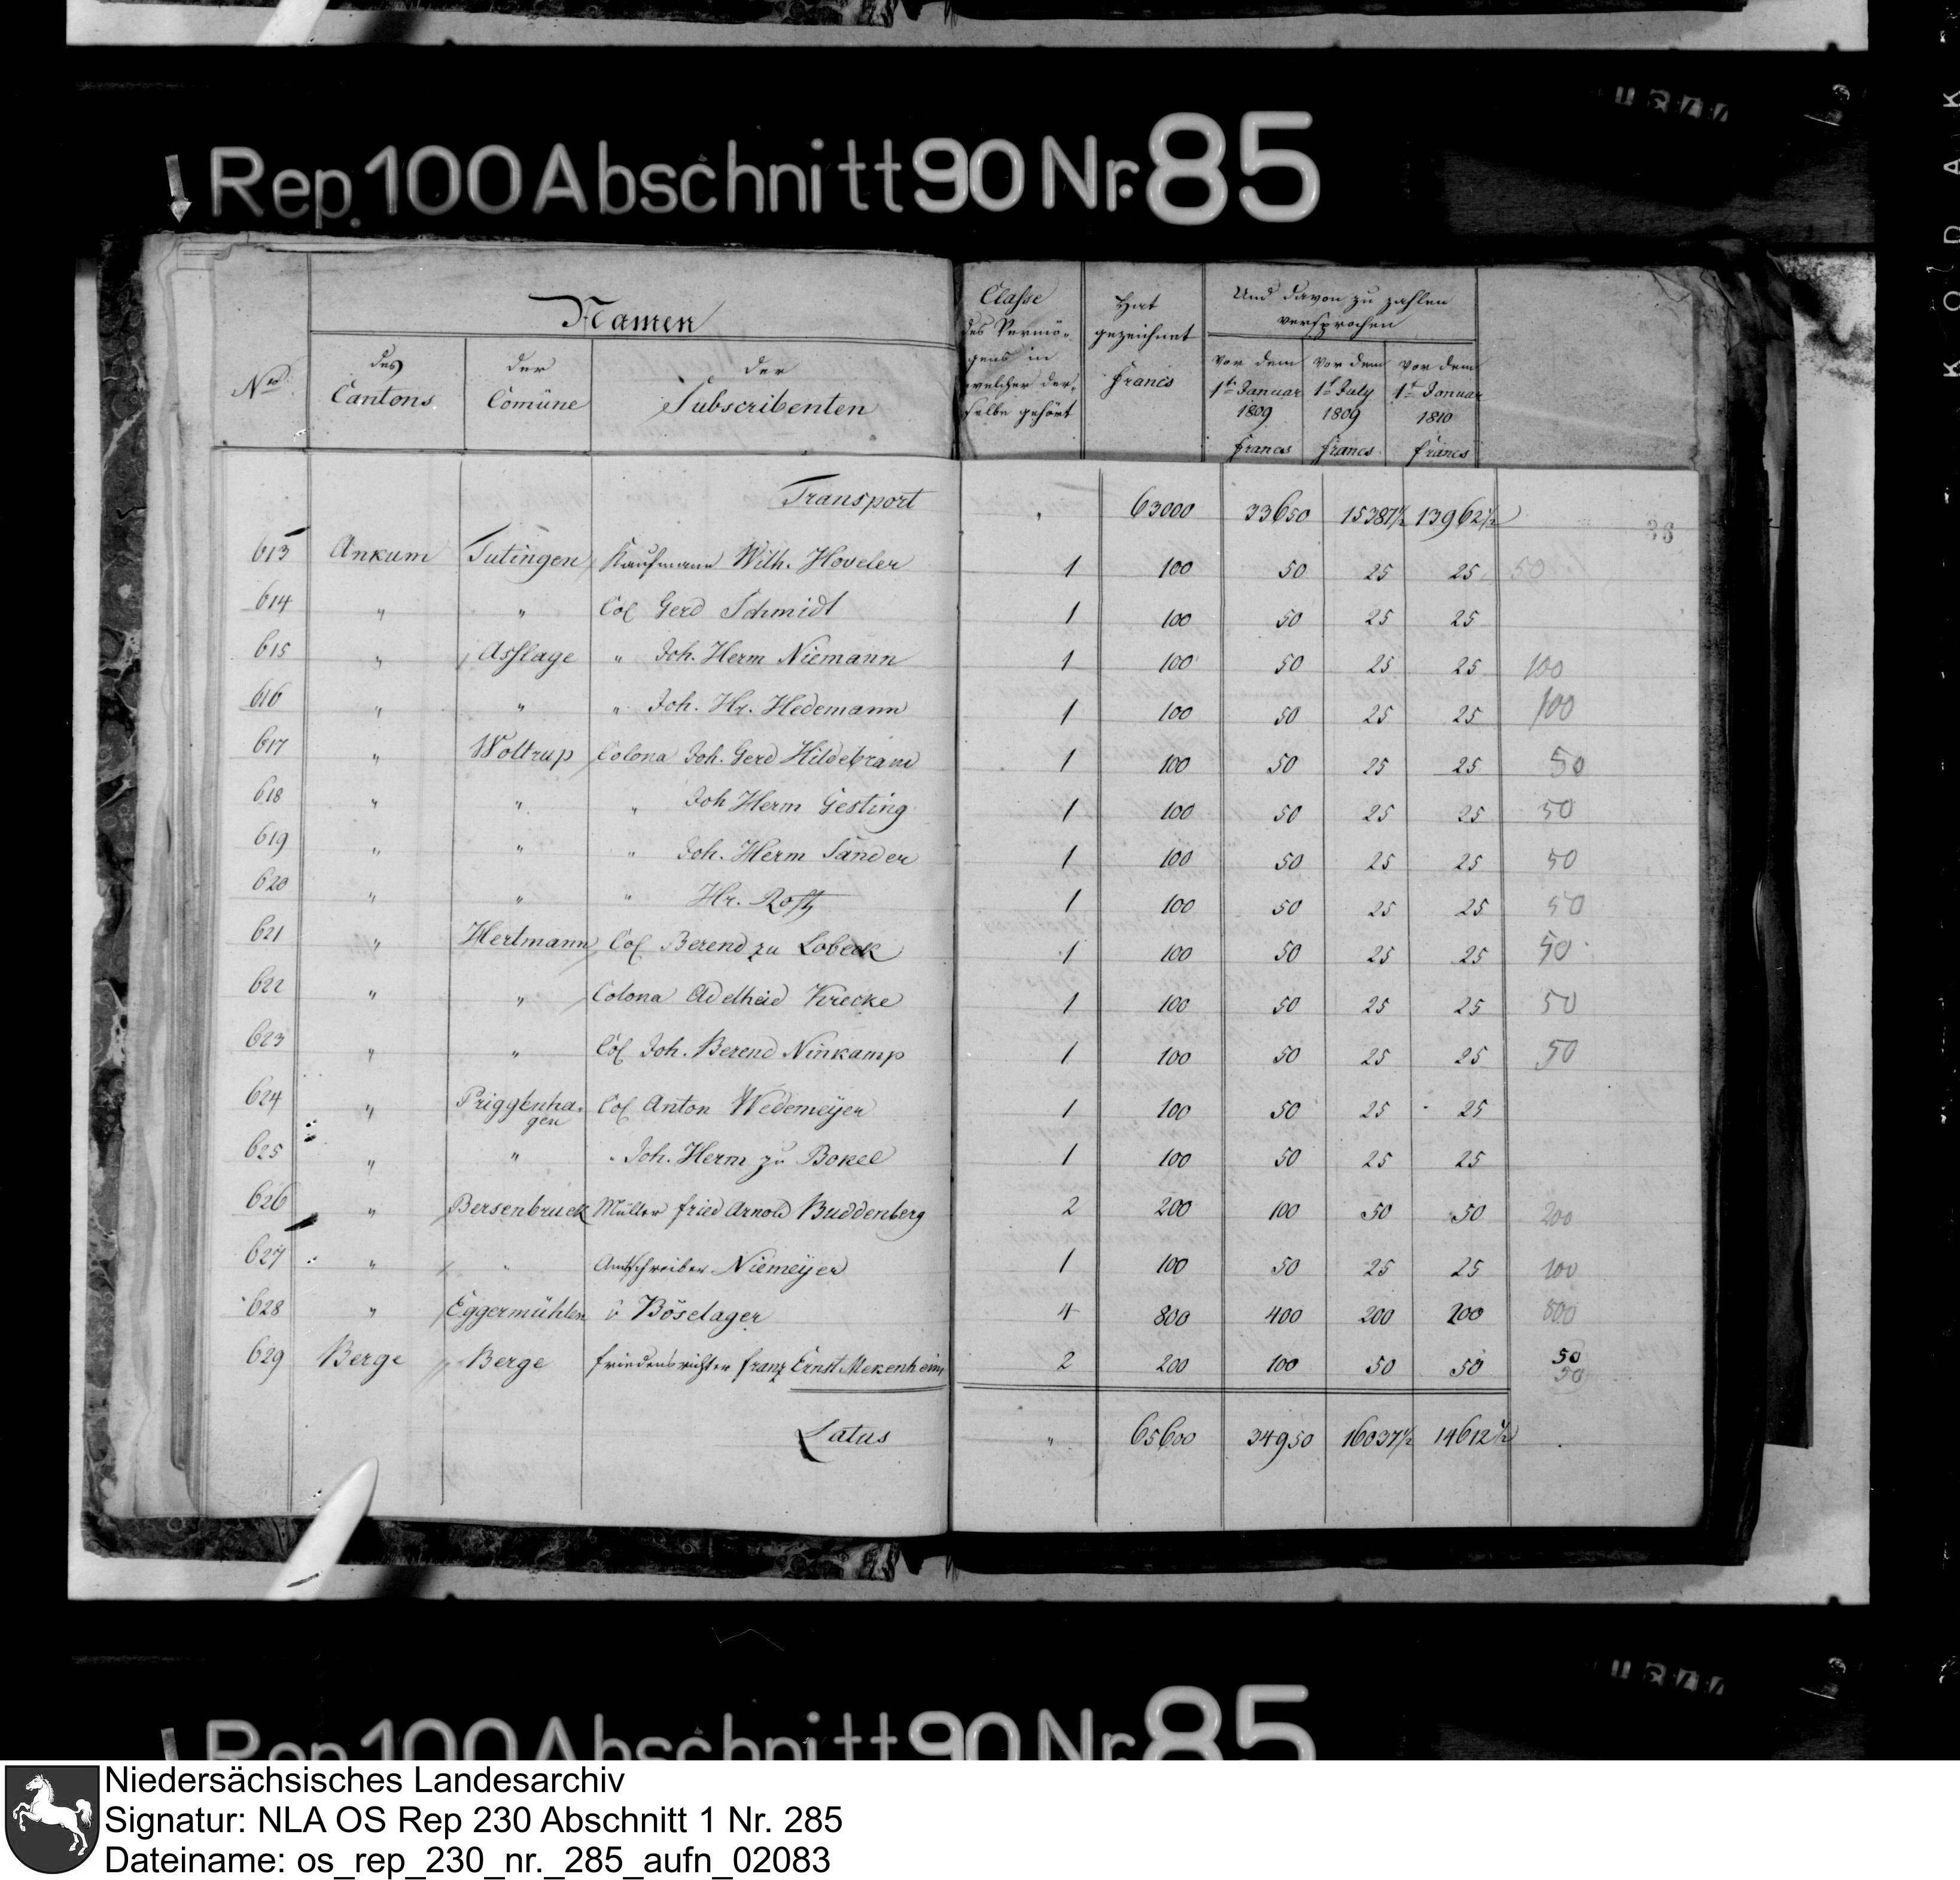 Rep. 100 Abschnitt 90 Nr. 85
Namen
Classe des Vermö-
gens in
welcher der-
selbe gehört
Hat
gezeichnet
Francs
Und davon zu zahlen
versprochen
No.
des
Cantons
der
Comüne
der
Subscribenten
vor dem
1tn Januar
1809
Francs
vor dem
1t July
1809
Francs
vor dem
1t Januar
1810
Francs
Transport " 63000 33650 15387½ 13962½
36
613 Ankum Tutingen Kaufmann Wilh. Hoveler 1 100 50 25 25 50
614 " " Col Gerd Schmidt 1 100 50 25 25
615 " Asslage " Joh. Herm Niemann 1 100 50 25 25 100
616 " " " Joh. Hr. Hedemann 1 100 50 25 25 100
617 " Woltrup Colona Joh. Gerd Hildebrand 1 100 50 25 25 50
618 " " " Joh Herm Gesting 1 100 50 25 25 50
619 " " " Joh. Herm Sander 1 100 50 25 25 50
620 " " " Hr. Roth 1 100 50 25 25 50
621 " Hertmann Col Berend zu Lobeck 1 100 50 25 25 50
622 " " Colona Adelheid Krecke 1 100 50 25 25 50
623 " " Col Joh. Berend Ninkamp 1 100 50 25 25 50
624 " Priggenha-
gen Col Anton Wedemeÿer 1 100 50 25 25
625 " " " Joh. Herm zu Bokel 1 100 50 25 25
626 " Bersenbruck Müller Fried Arnold Buddenberg 2 200 100 50 50 200
627 " " Amtschreiber Niemeÿer 1 100 50 25 25 100
628 " Eggermühlen v Böselager 4 800 400 200 200 800
629 Berge Berge Friedensrichter Franz Ernst Mekenheim 2 200 100 50 50 50
50
Latus " 65600 34950 16037½ 14612½
Rep. 100 Abschnitt 90 Nr. 85
Niedersächsisches Landesarchiv
Signatur: NLA OS Rep 230 Abschnitt 1 Nr. 285
Dateiname: os_rep_230_nr._285_aufn_02083